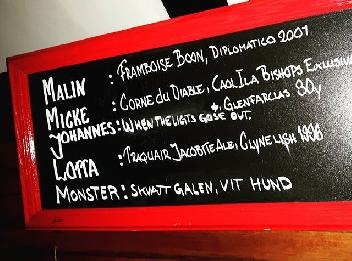 MALIN : FRAMBOISE BOON, DIPLOMATICO 2001
MICKE : CORNE DU DIABLE, CAOL ILA BISHOPS EXCLUSIVE
JOHANNES: WHEN THE LIGTS GOSE OUT, GLENFARCLAS 30y
LOTTA : TRAQUAIR JACOBITE ALE, CLYNELISH 1996
MONSTER: SKVATT GALEN, VIT HUND